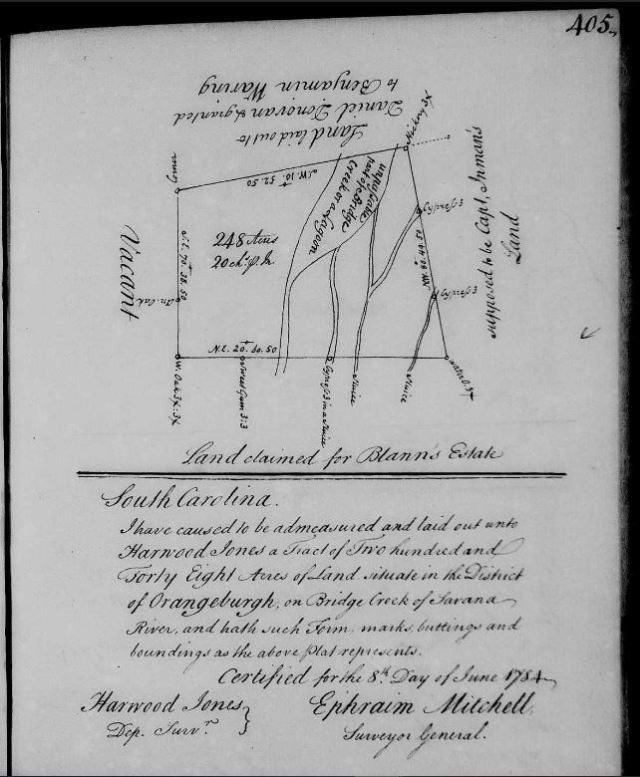 405.
Land laid out to
Daniel Donovan & granted
to Benjamin Waring
Vacant
248 Acres
20 chs. p. In.
S.W. 10. 52.50
Creek or a Lagoon
part of Bridge
Hickory 3X
supposed to be Capt. Inman's
Land
N.E. 20. 60.50
W. Oak 3X:3X
Sweet Gum 3:3
3 Cypress in a Sluice
Sluice
Sluice
Land claimed for Blann's Estate
South Carolina.
I have caused to be admeasured and laid out unto
Harwood Jones a Tract of Two hundred and
Forty Eight Acres of Land situate in the District
of Orangeburgh, on Bridge Creek of Savana
River, and hath such Form, marks, buttings and
boundings as the above plat represents.
Certified for the 8th. Day of June 1784
Harwood Jones }
Dep. Survr.
Ephraim Mitchell
Surveyor General.